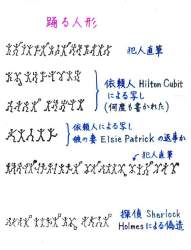 踊る人形
犯人直筆
依頼人 Hilton Cubit
による写し
(何度も書かれた)
依頼人による写し
彼の妻 Elsie Patrick の返事か
犯人直筆
探偵 Sherlock
Holmesによる偽造